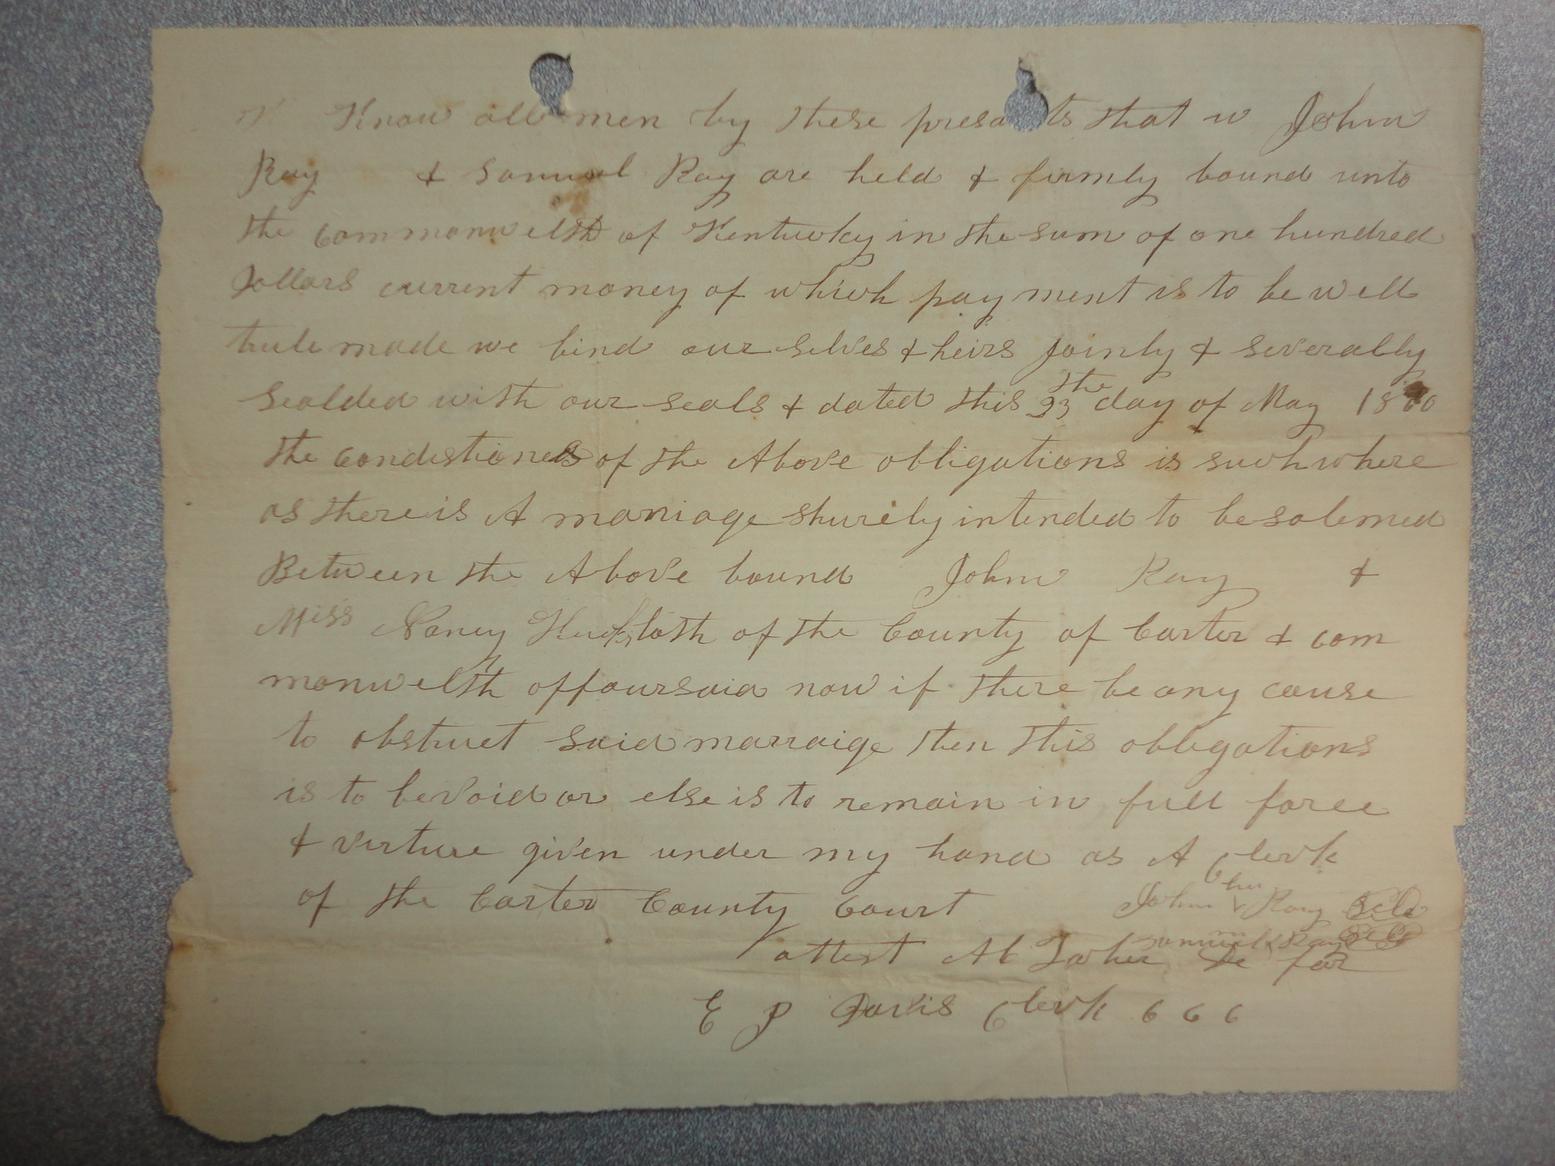 Know all men by these presants that w John
Ray & Samuel Ray are held & firmly bound unto
the commonwelth of Kentucky in the sum of one hundred
Dollars current money of which payment is to be well
trule made we bind our selves & heirs Jointy & severally
Sealded with our seals & dated this 23 the day of May 1860
the condistiones of the Above obbligations is such where
as there is A marriage shurely intended to be solemed
Between the Above bound John Ray &
Miss Nancy both of the County of Carter & com
monwelth offoursaid now if there be any cause
to obstruct said marraige then this obbligations
is to be void or else is to remain in full force
& virture given under my hand as A Clerk
of the Carter County Court John his Ray
Samuel Ray
attest for
E P Davis Clerk C C C